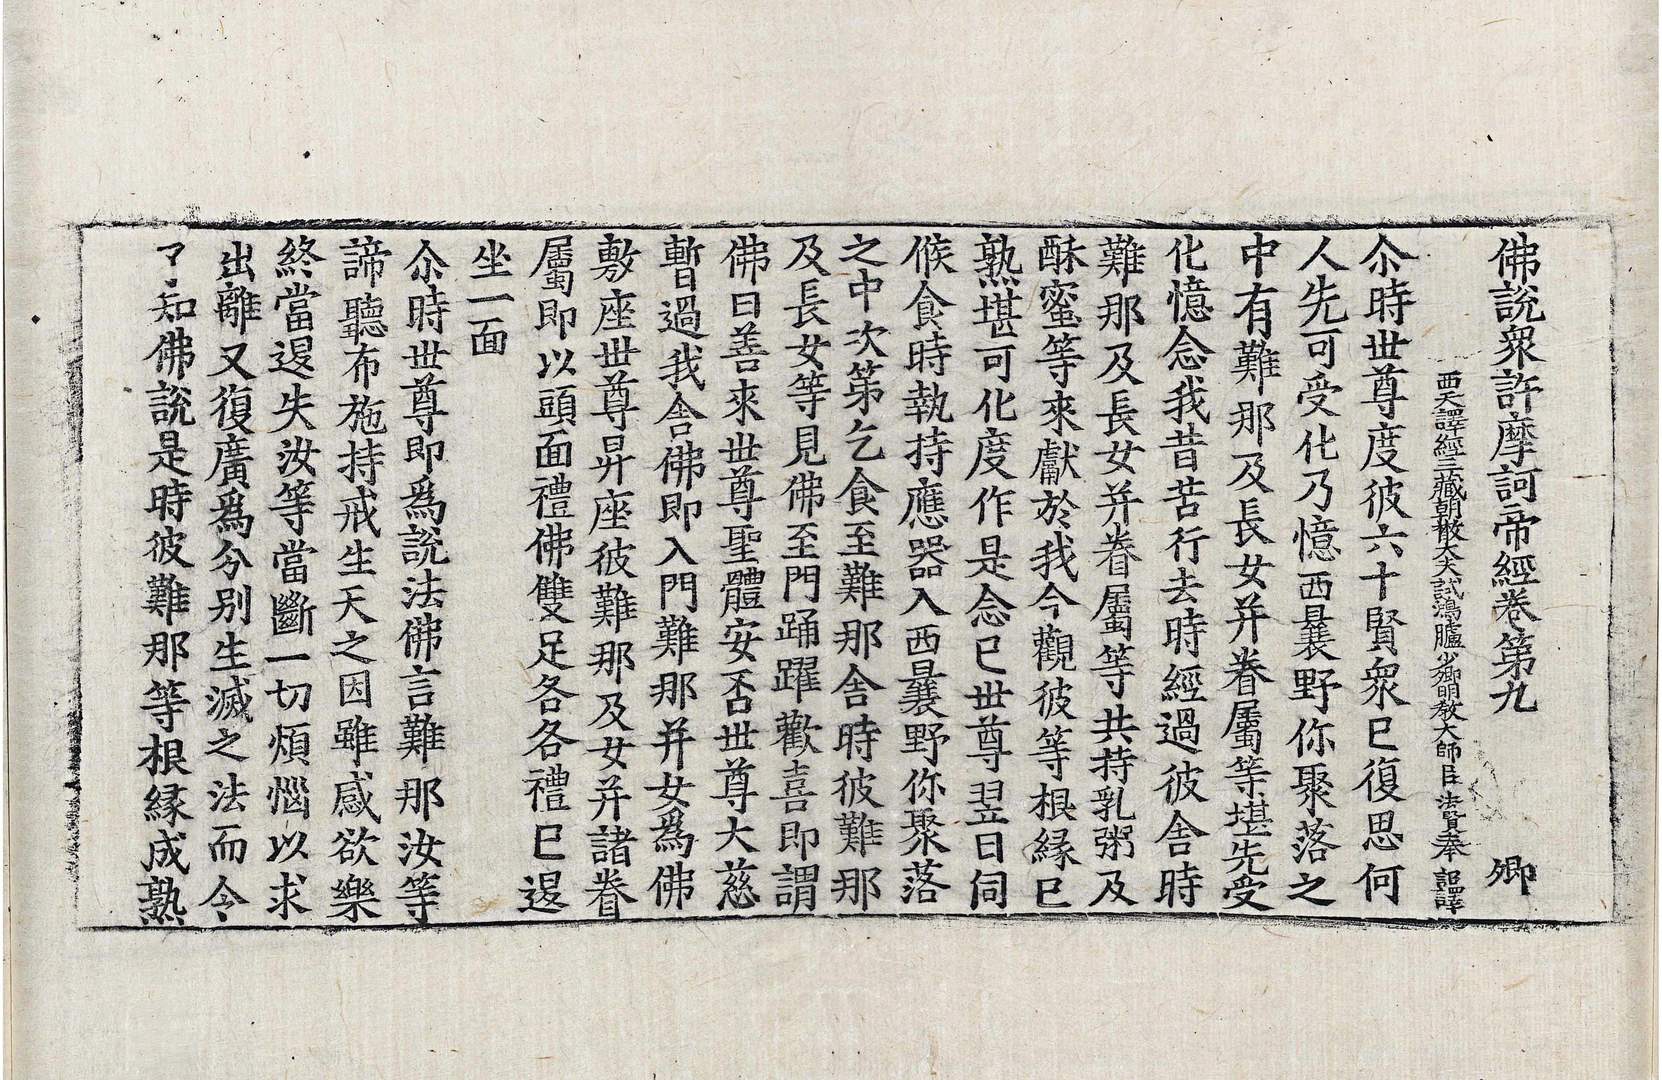 佛說衆許摩訶帝經卷第九 卿
西天譯經三藏朝散大夫試鴻臚少卿明教大師臣法賢奉 詔譯
尒時世尊度彼六十賢衆已復思何
人先可受化乃憶西曩野你聚落之
中有難那及長女并眷屬等堪先受
化憶念我昔苦行去時經過彼舍時
難那及長女并眷屬等共持乳粥及
酥蜜等來獻於我今觀彼等根緣已
熟堪可化度作是念已世尊翌日伺
候食時執持應器入西曩野你聚落
之中次第乞食至難那舍時彼難那
及長女等見佛至門踊躍歡喜即謂
佛曰善來世尊聖體安否世尊大慈
暫過我舍佛即入門難那并女爲佛
敷座世尊昇座彼難那及女并諸眷
屬即以頭面禮佛雙足各各禮已退
坐一面
尒時世尊即爲說法佛言難那汝等
諦聽布施持戒生天之因雖感欲樂
終當退失汝等當斷一切煩惱以求
出離又復廣爲分別生滅之法而令
了知佛說是時彼難那等根緣成熟